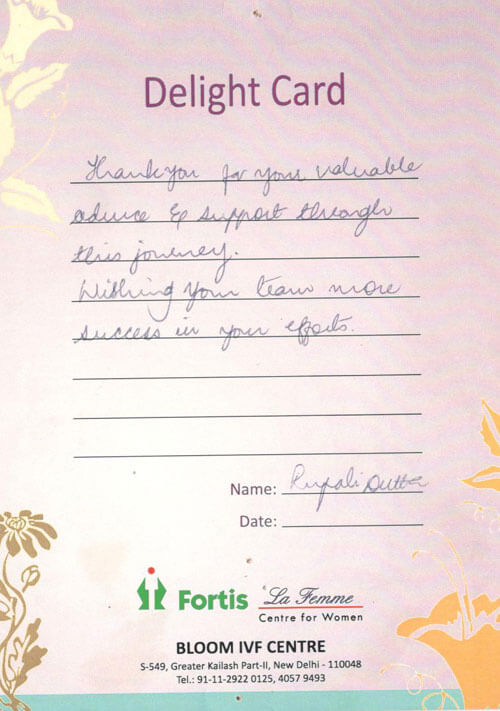 Delight Card
Thank you for your valuable
advice & support through
this journey.
Wishing your team more
success in your efforts.
Name: Rupali Dutta
Date:
Fortis La Femme
Centre for Women
BLOOM IVF CENTRE
S-549, Greater Kailash Part-II, New Delhi - 110048
Tel.: 91-11-2922 0125, 4057 9493